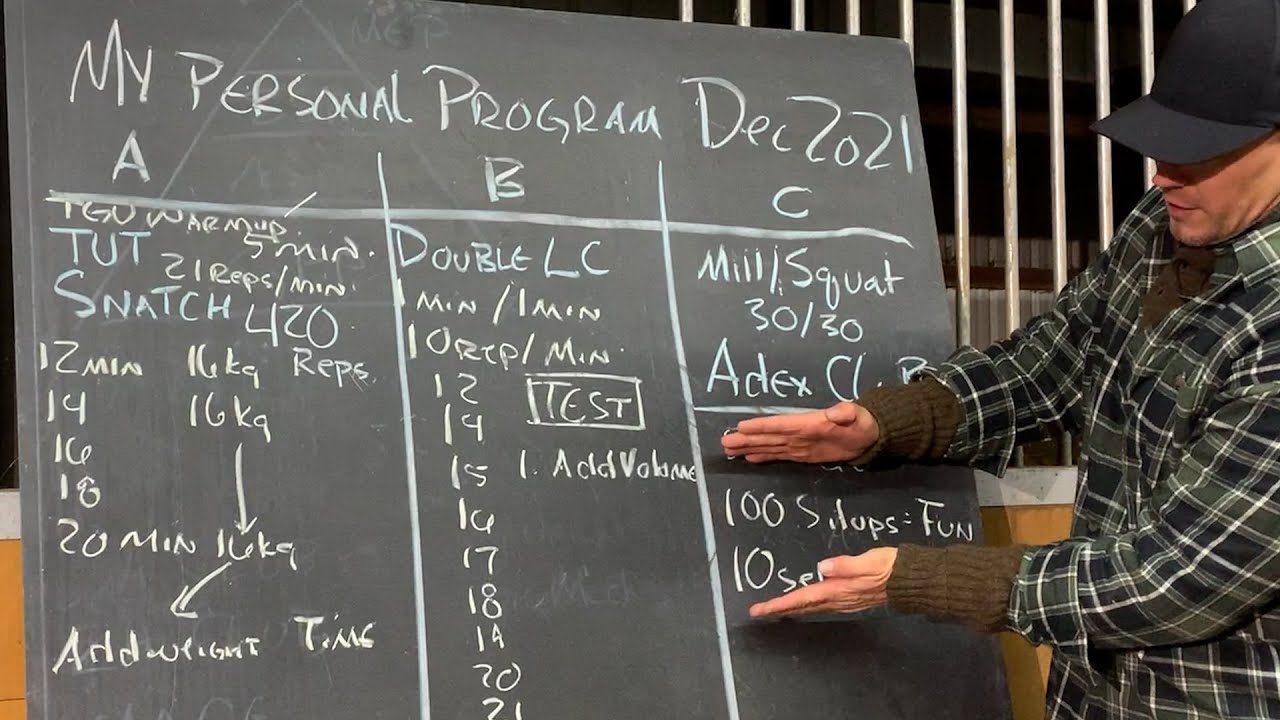 My Personal Program Dec 2021
A
TGU Warmup
TUT 5 min.
21 Reps/min.
Snatch 420
12 min 16kg Reps.
14 16kg
16
18
20 min 16kg
Add weight Time
B
Double LC
1 min / 1 min
10 rep/min.
12 TEST
14
15 1. Add Volume
16
17
18
19
20
21
C
Mill/Squat
30/30
Adex Cl.
100 Situps = Fun
10